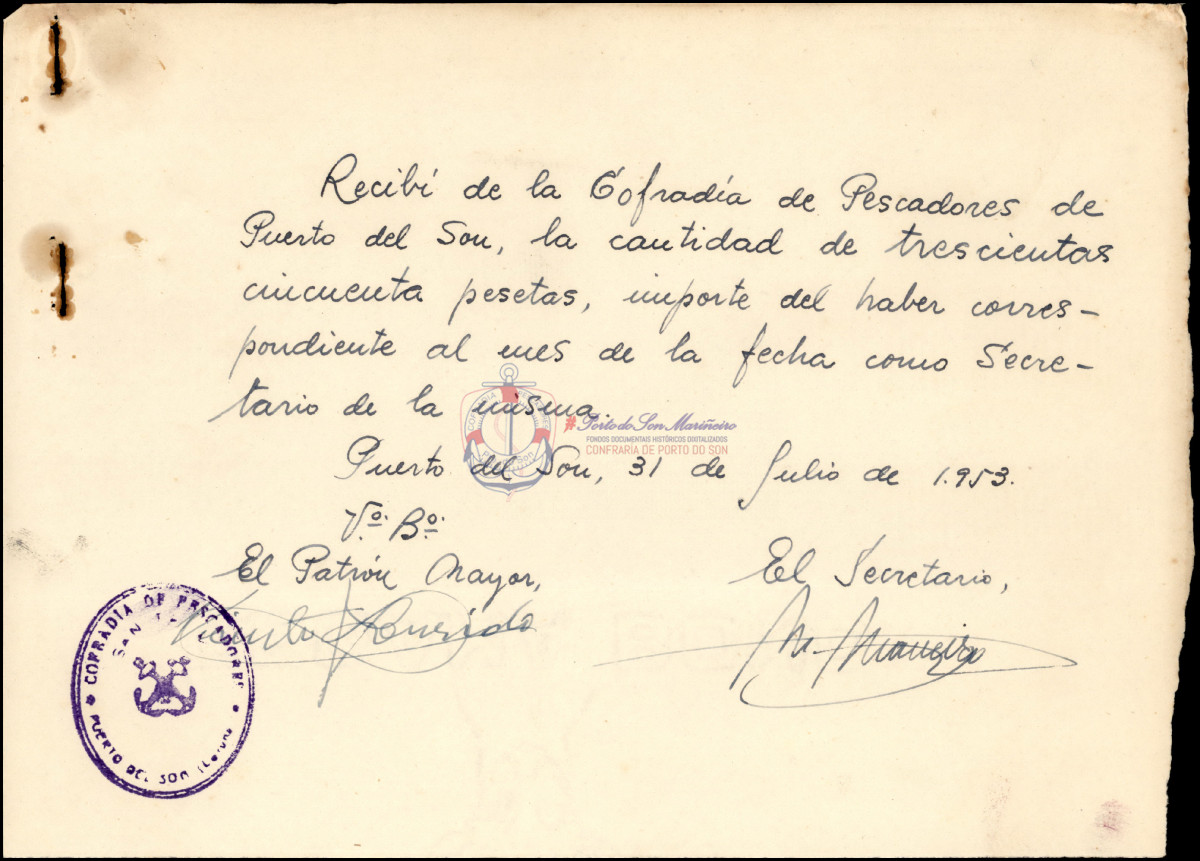 Recibí de la Cofradía de Pescadores de
Puerto del Son, la cantidad de trescientas
cincuenta pesetas, importe del haber corres-
pondiente al mes de la fecha como Secre-
tario de la misma.
#Porto do Son Mariñeiro
FONDOS DOCUMENTAIS HISTÓRICOS DIXITALIZADOS
CONFRARÍA DE PORTO DO SON
Puerto del Son, 31 de Julio de 1.953.
Vº. Bº.
El Patrón Mayor,
El Secretario,
Vicente
COFRADIA DE PESCADORES
PUERTO DEL SON